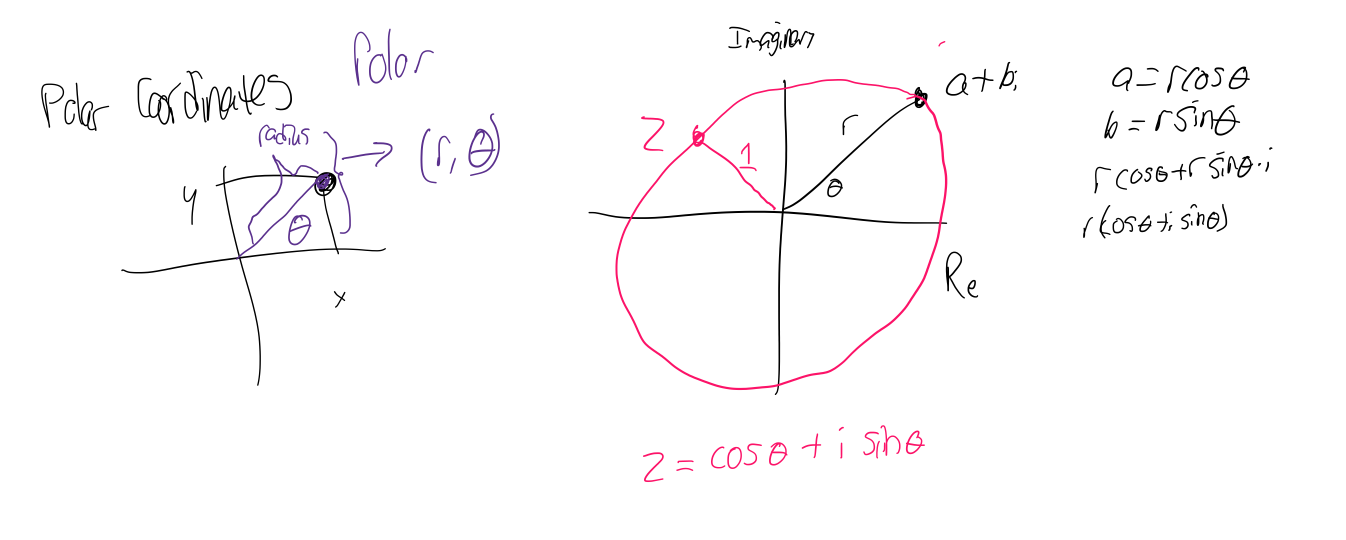 Polar Coordinates
Polar
radius
(r, θ)
y
θ
x
Imaginary
a+bi
r
Z
1
θ
Re
a=rcosθ
b=rsinθ
rcosθ+rsinθ·i
r(cosθ+i sinθ)
z = cosθ + i sinθ